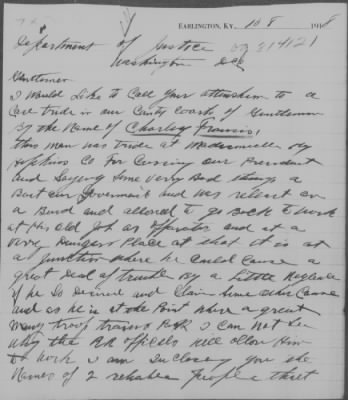 EARLINGTON, KY. 10 8 1918
Department of Justice
Washington
Gentlemen
I would Like to Call your attenshin to a
Case tride in our County Court of a Gentleman
By the Name of Charley Francis,
this man was tride at Madisonville Ky
Hopkins Co For Cursing our President
and Saying Some very Bad things a
Bout our Goverment and was relest on
a Bond and allowed to go Back to work
at His old Job as operator and at a
very Dangers Place at that it is at
a Junction where he Could Cause a
great Deal of trouble By a Little
if he So Desired and Claim Some other Cause
and as he is at the Point where a great
many troop trains Pass I Can Not See
why the RR officels will allow Him
to work I am Inclosing you the
Names of 2 people that